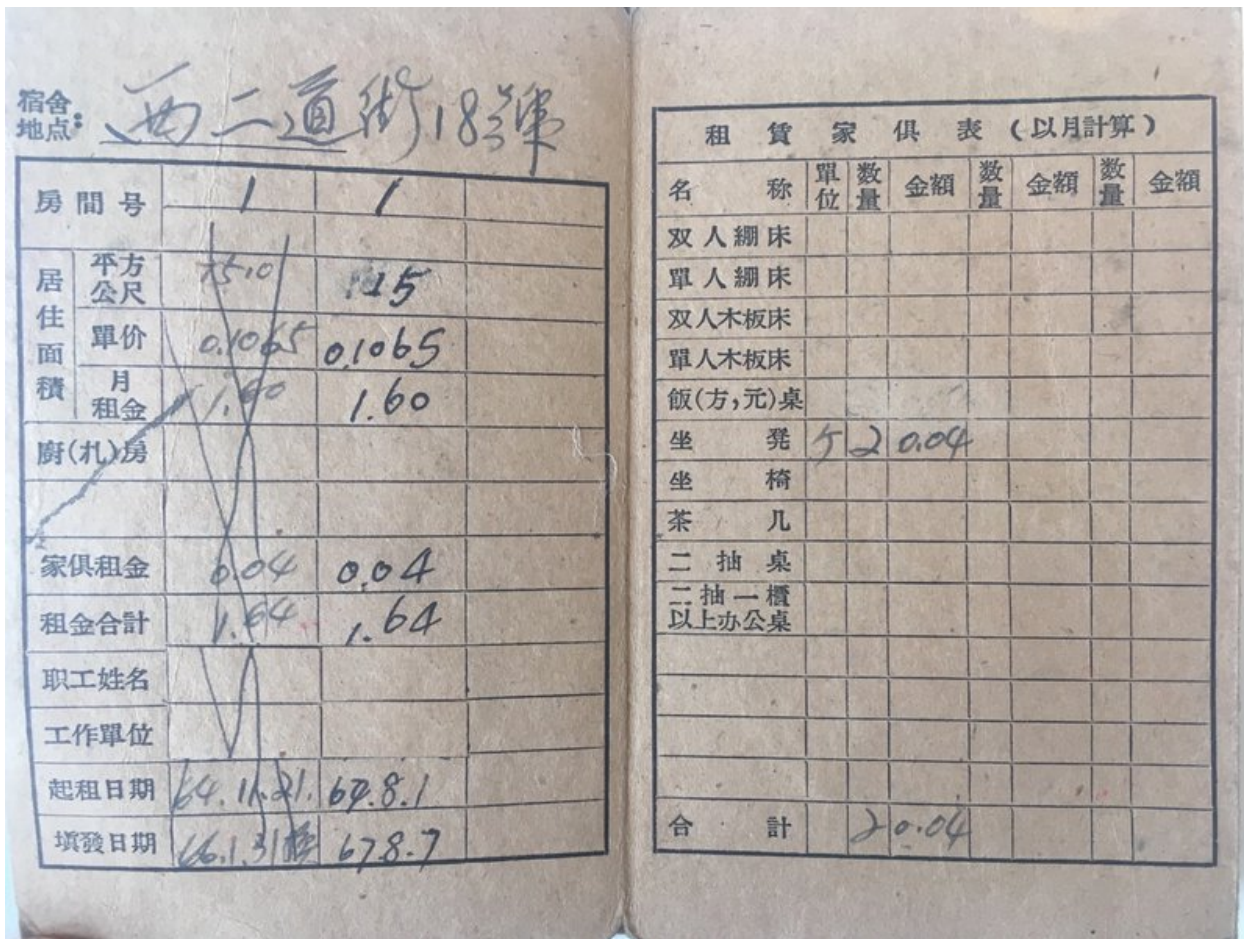 宿舍地点: 西二道街18号
房間号 1 1
居住面積
平方公尺 15.10 15
單价 0.1065 0.1065
月租金 1.60 1.60
廚(扎)房
家俱租金 0.04 0.04
租金合計 1.64 1.64
职工姓名
工作單位
起租日期 64.11.21. 67.8.1
填發日期 66.1.31 67.8.7
租賃家俱表(以月計算)
名称 單位 数量 金額 数量 金額 数量 金額
双人綳床
單人綳床
双人木板床
單人木板床
飯(方,元)桌
坐凳 ケ 2 0.04
坐椅
茶几
二抽桌
二抽一櫃
以上办公桌
合計 2 0.04